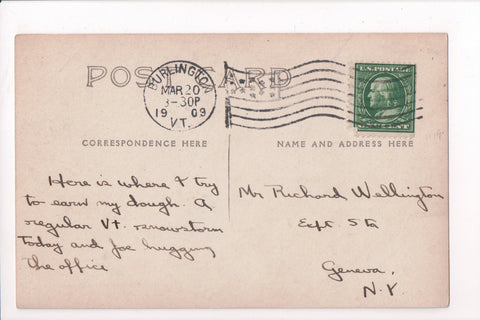 POST CARD
BURLINGTON
MAR 20
3-30P
1909
VT.
U.S. POSTAGE
CORRESPONDENCE HERE
NAME AND ADDRESS HERE
Here is where I try
to earn my dough. A
regular Vt. snowstorm
today and Joe hugging
the office
Mr Richard Wellington
Expt Sta
Geneva,
N.Y.